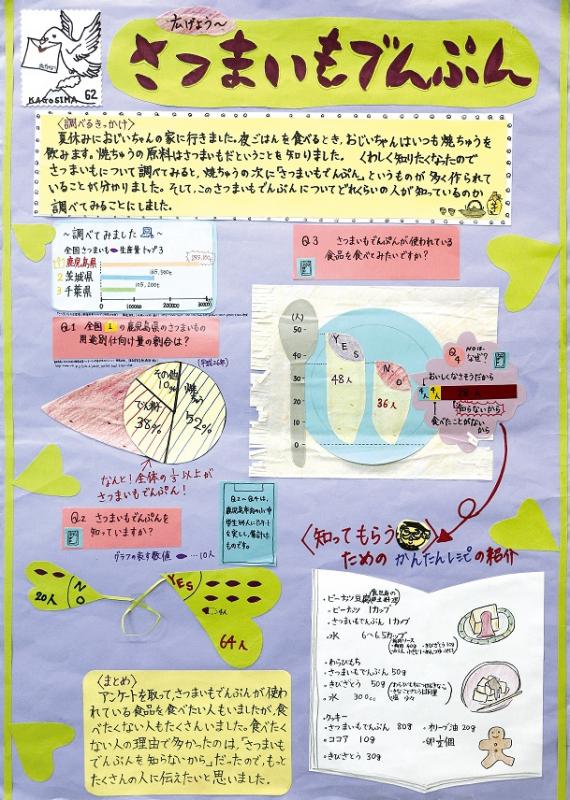 KAGOSIMA 62
広げよう～
さつまいもでんぷん
〈調べるきっかけ〉
夏休みにおじいちゃんの家に行きました。夜ごはんを食べるとき、おじいちゃんはいつも焼ちゅうを
飲みます。焼ちゅうの原料はさつまいもだということを知りました。くわしく知りたくなったので
さつまいもについて調べてみると、焼ちゅうの次に「さつまいもでんぷん」というものが多く作られて
いることが分かりました。そして、このさつまいもでんぷんについてどれくらいの人が知っているのか
調べてみることにしました。
～調べてみました
全国さつまいも生産量トップ3
鹿児島県
2 茨城県
3 千葉県
Q.1 全国1の鹿児島県のさつまいもの
用途別仕向け量の割合は？
(平成26年)
その他
10%
焼ちゅう
52%
でん粉
38%
なんと!全体の1/3以上が
さつまいもでんぷん!
Q.2 さつまいもでんぷんを
知っていますか？
グラフの表す数値 …10人
Q.2～Q.4は、
NO
20人
YES
4人
64人
Q3 さつまいもでんぷんが使われている
食品を食べてみたいですか？
(人)
50
40
30
20
10
0
YES
48人
NO
36人
Q4 NOは、なぜ？
おいしくなさそうだから
4人 4人
知らないから
食べたことがない
から
〈知ってもらう
ための かんたんレシピの紹介
・ピーナツ豆腐
・ピーナツ 1カップ
・さつまいもでんぷん 1カップ
・水 6～6.5カップ
・わらびもち
・さつまいもでんぷん 50g
・きびざとう 50g
・水 300cc
・クッキー
・さつまいもでんぷん 80g ・オリーブ油 20g
・ココア 10g
・きびざとう 30g
〈まとめ〉
アンケートを取って、さつまいもでんぷんが使わ
れている食品を食べたい人もいましたが、食
べたくない人もたくさんいました。食べたく
ない人の理由で多かったのは、「さつまいも
でんぷんを知らないから」だったので、もっと
たくさんの人に伝えたいと思いました。